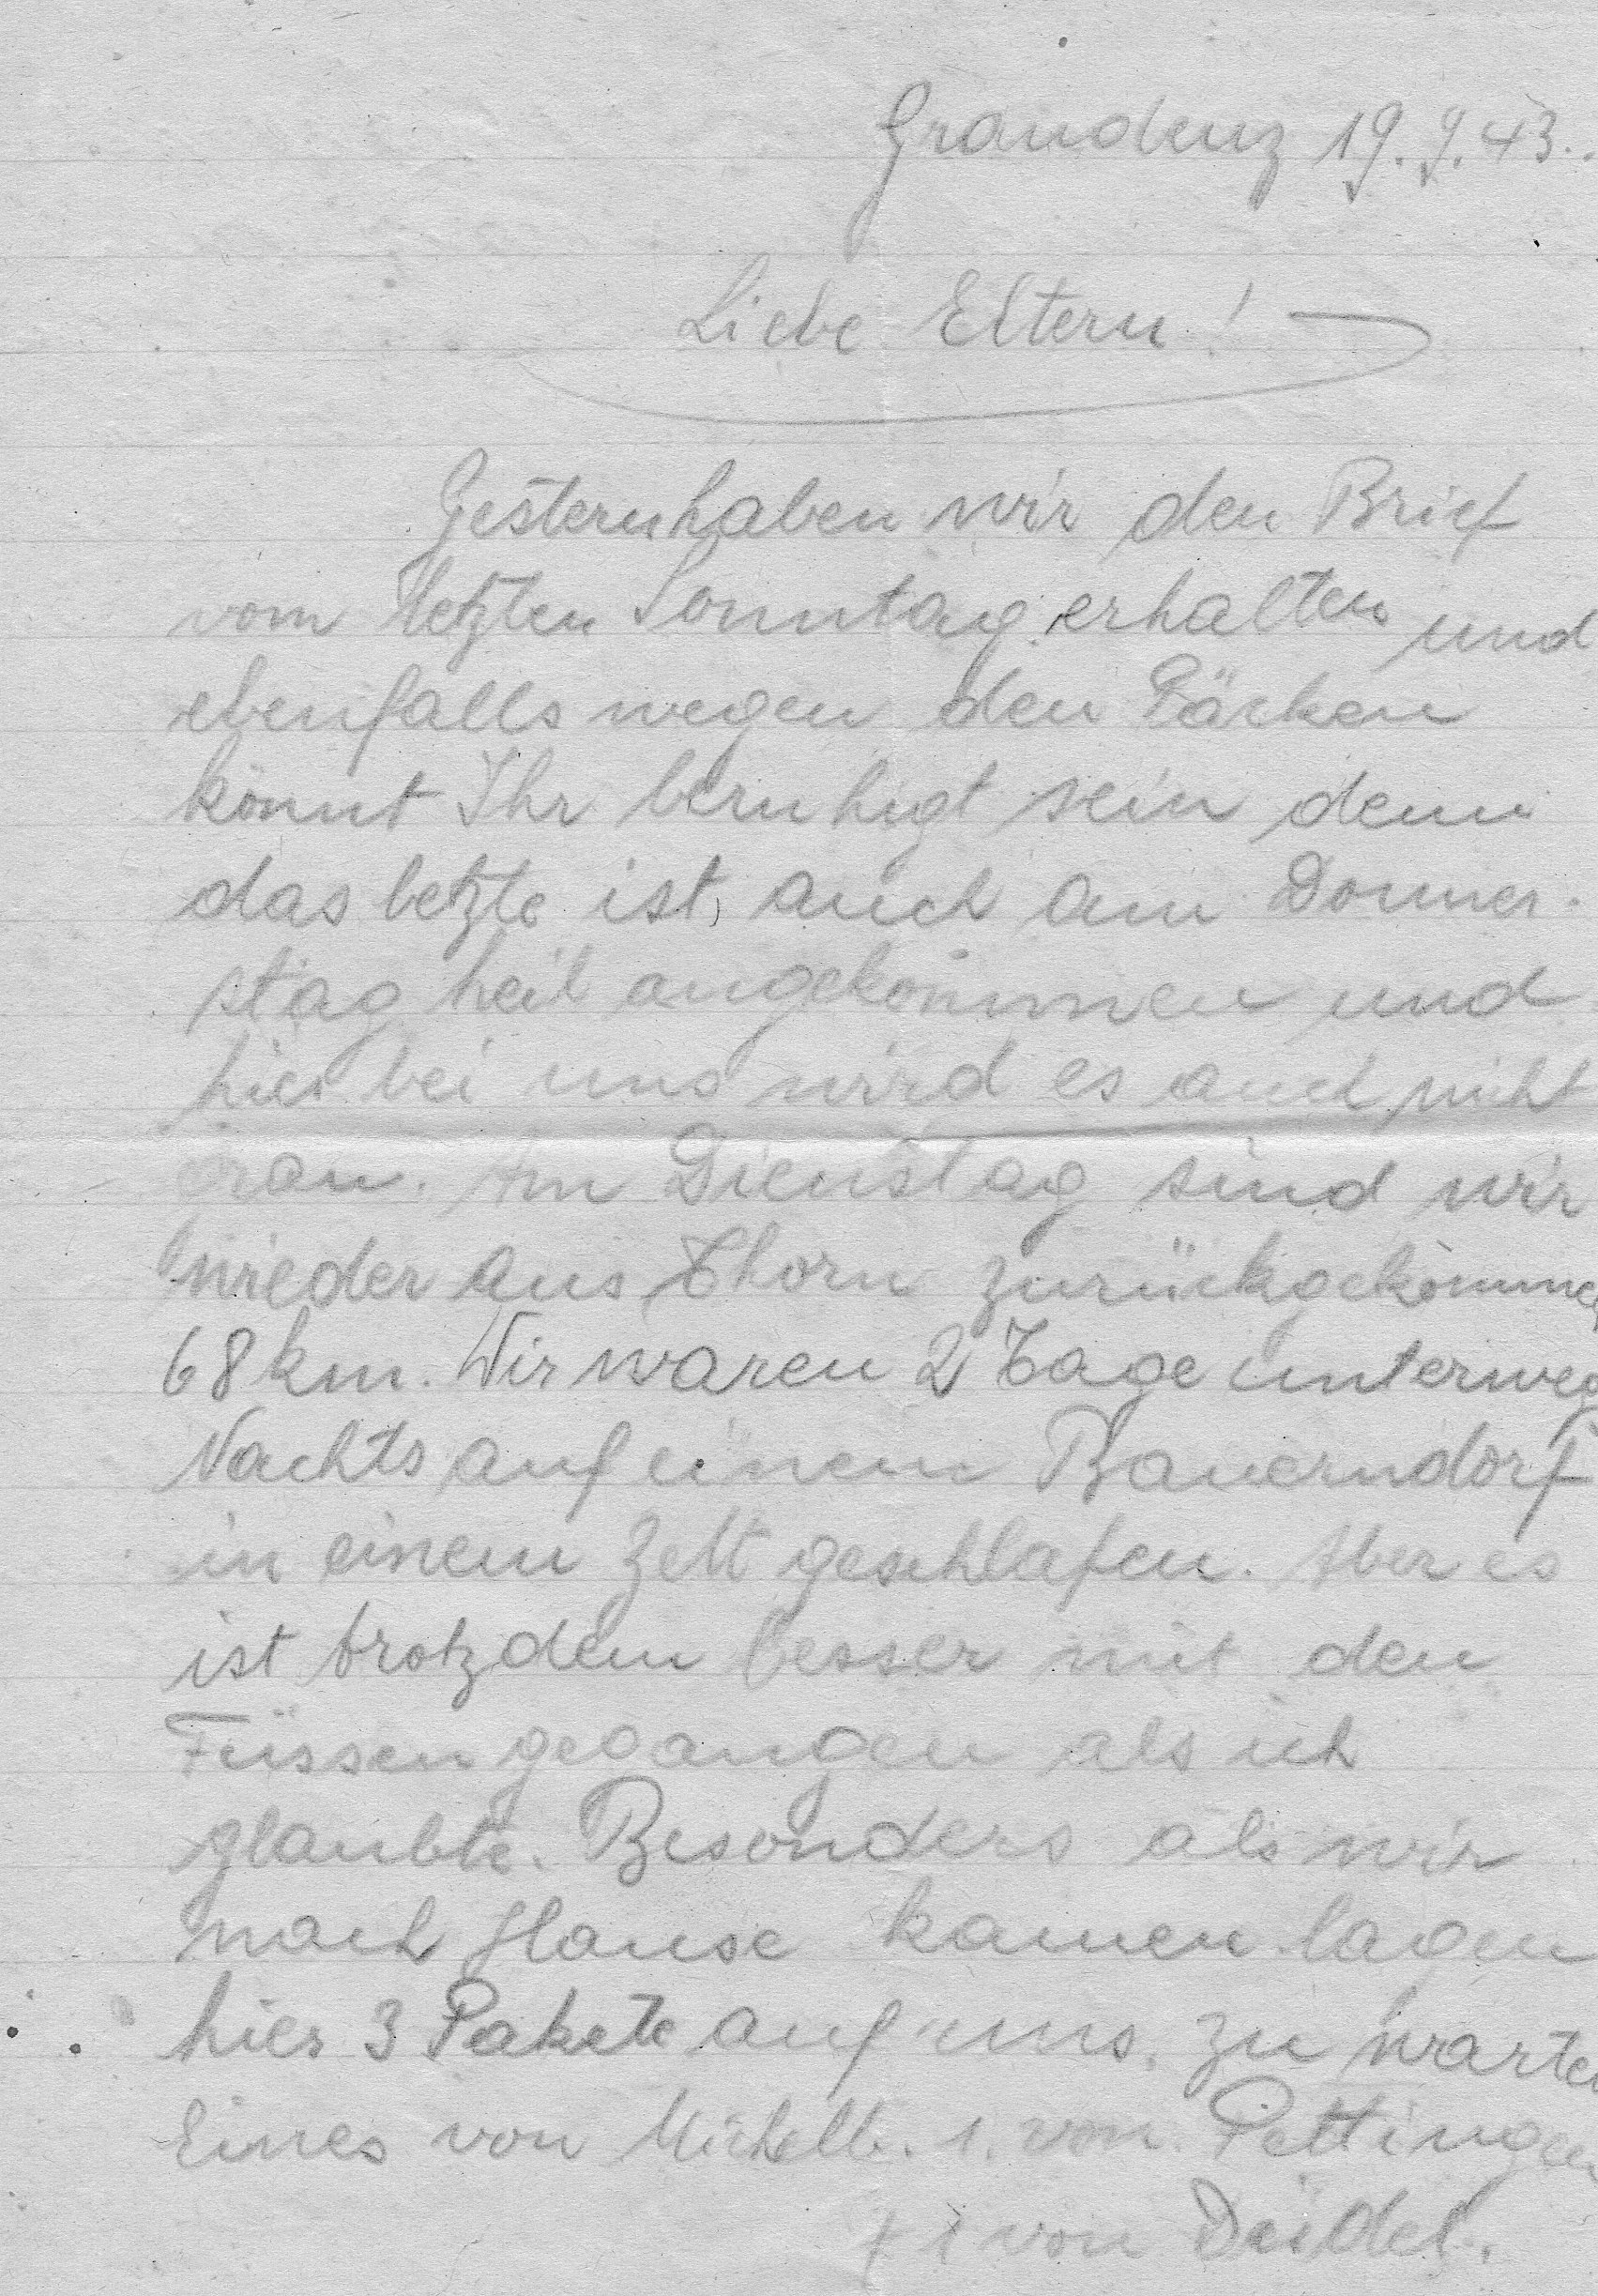 Graudenz 19.9.43.
Liebe Eltern!
Gestern haben wir den Brief
vom letzten Sonntag erhalten und
ebenfalls wegen den Päcken
könnt Ihr beruhigt sein denn
das letzte ist auch am Donner-
stag heil angekommen und
hier bei uns wird es auch nicht
Am Dienstag sind wir
wieder aus Thorn zurückgekommen
68 km. Wir waren 2 Tage unterweg
Nachts auf einem Bauerndorf
in einem Zelt geschlafen. Aber es
ist trotzdem besser mit den
Füssen gegangen als ich
glaubte. Besonders als wir
nach Hause kamen lagen
hier 3 Pakete auf uns zu warten
Eines von 1. von Pettingen
+ 1 von